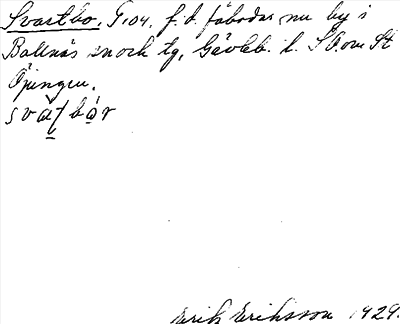 Svartbo. T,04. f.d. fäbodar nu by i
Bollnäs snock tg, Gävleb. l. SO om St
Öjungen.
svàt bór
Erik Eriksson 1929.